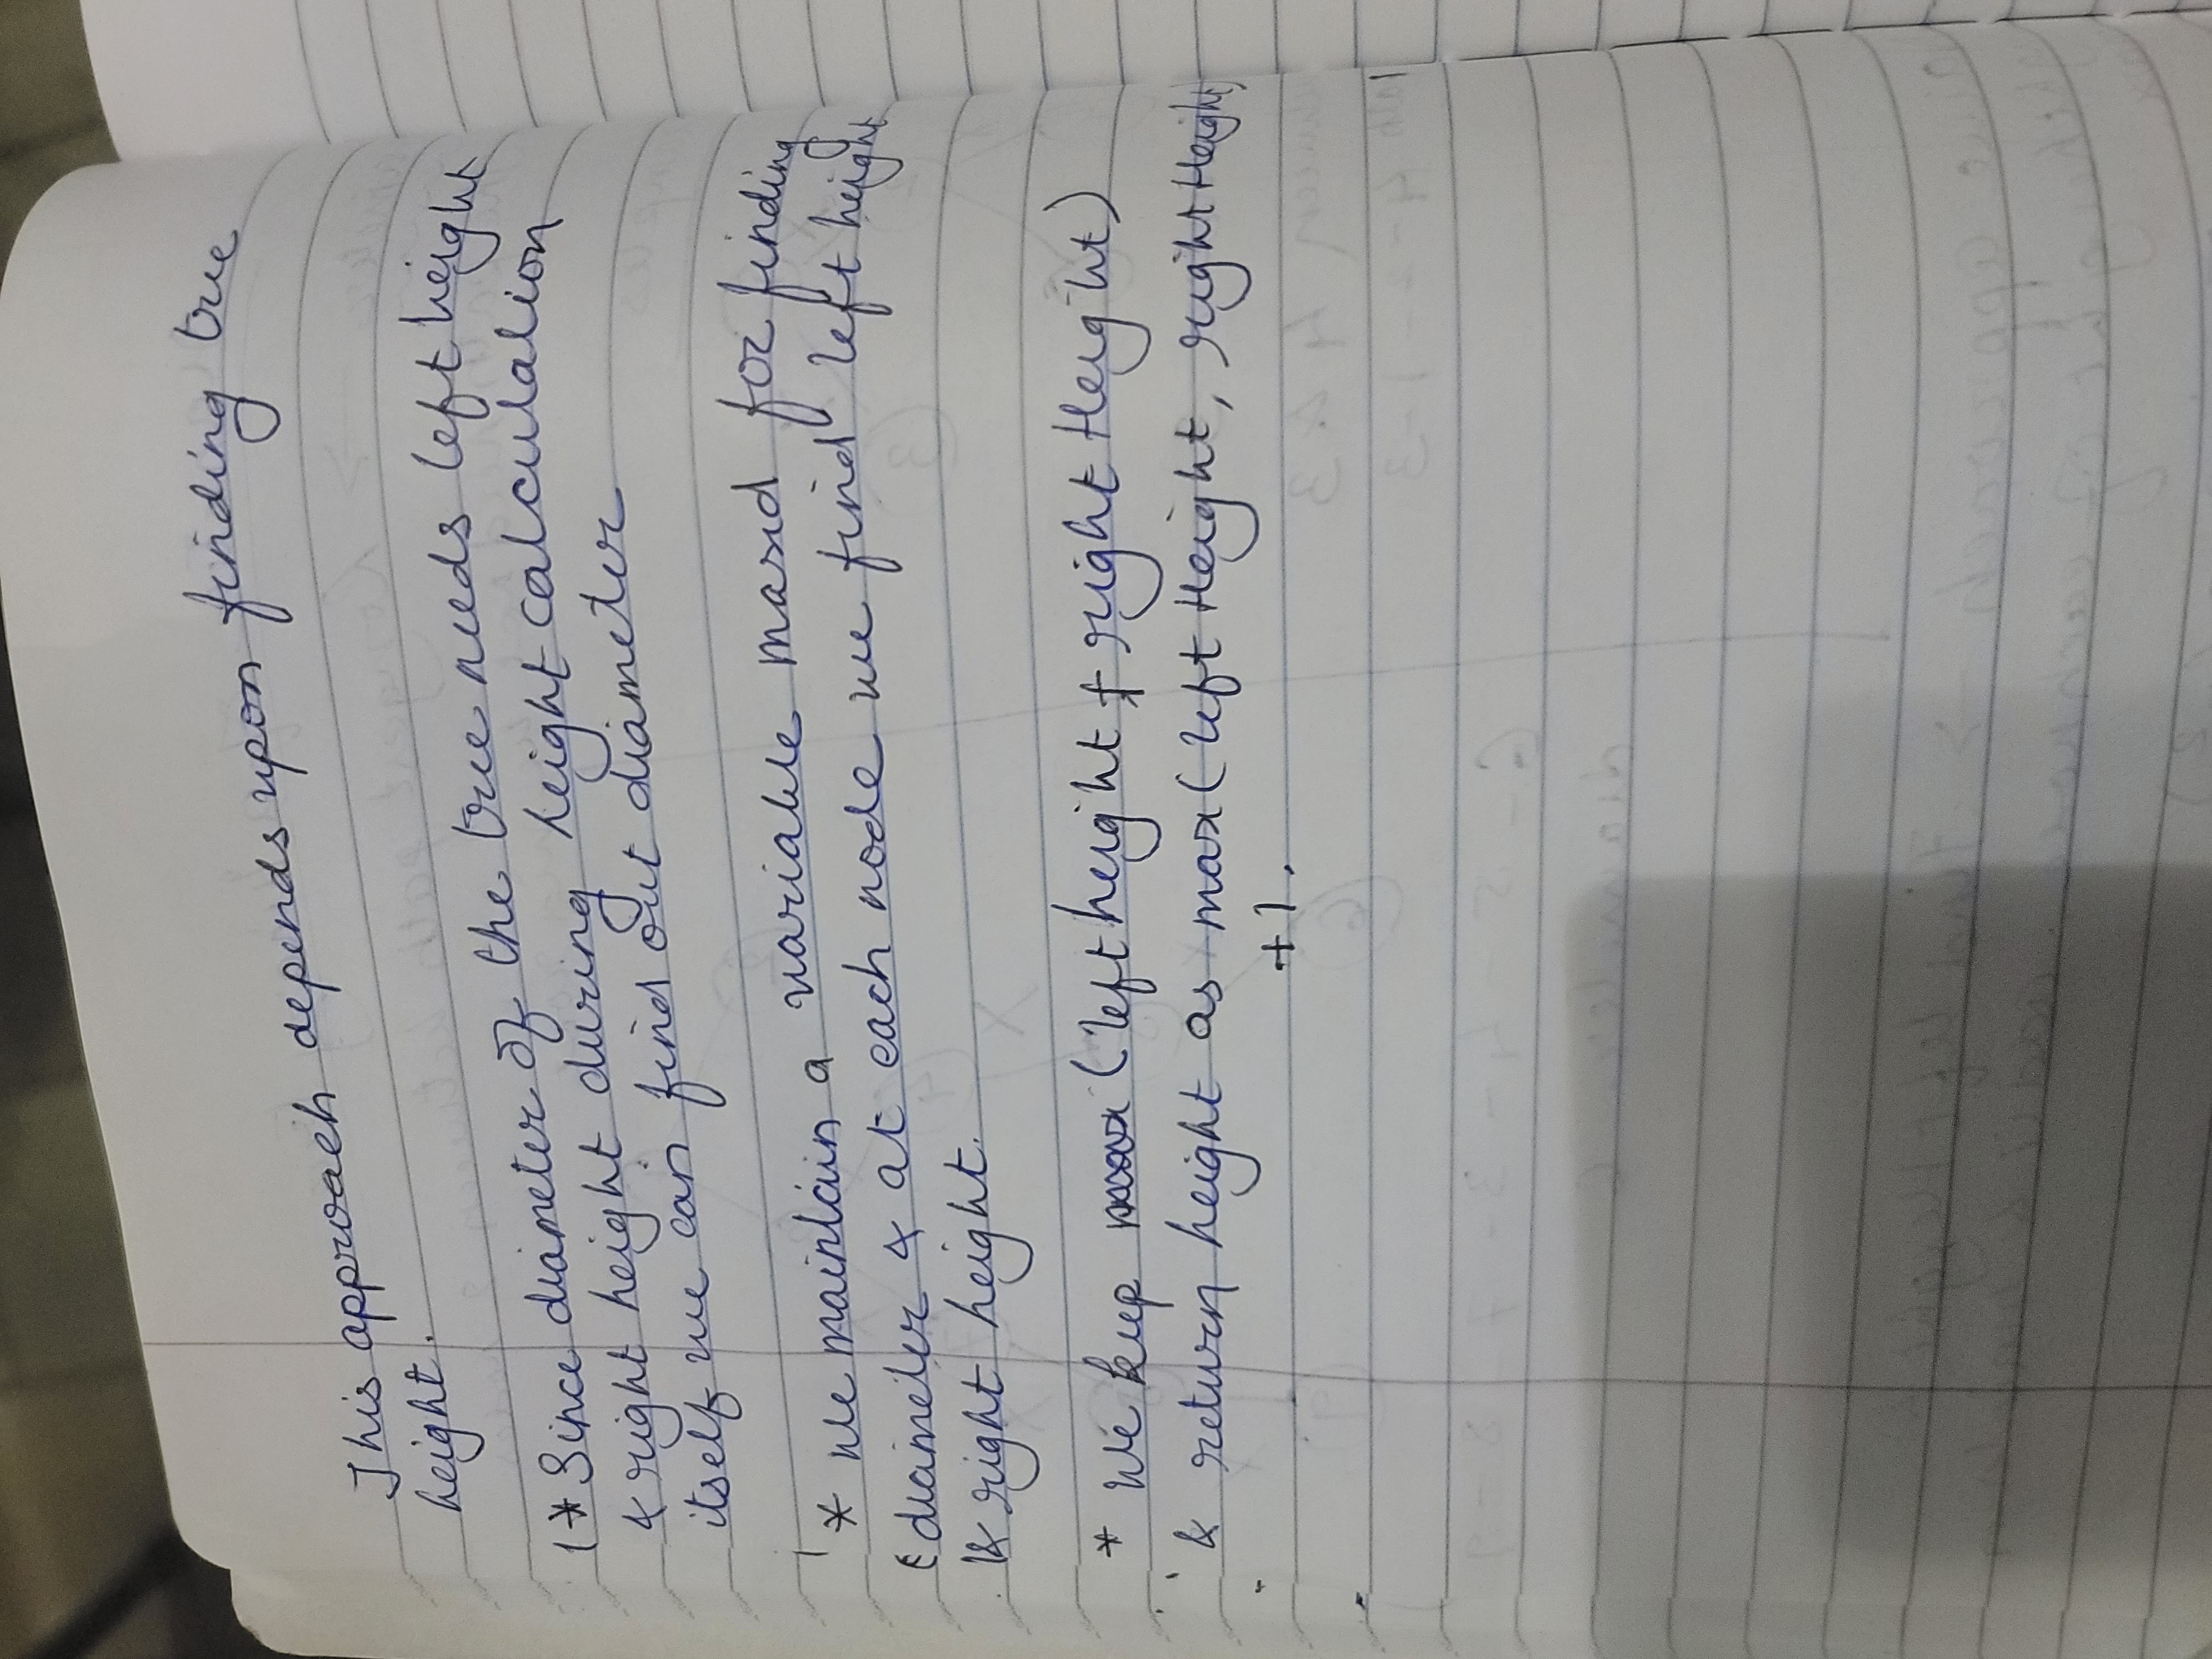 This approach depends upon finding tree
height.
* Since diameter of the tree needs left height
& right height during height calculation
itself we can find out diameter
* We maintain a variable maxd for finding
diameter & at each node we find left height
& right height.
* We keep max (left height + right Height)
& return height as max( left Height, right Height)
+1.